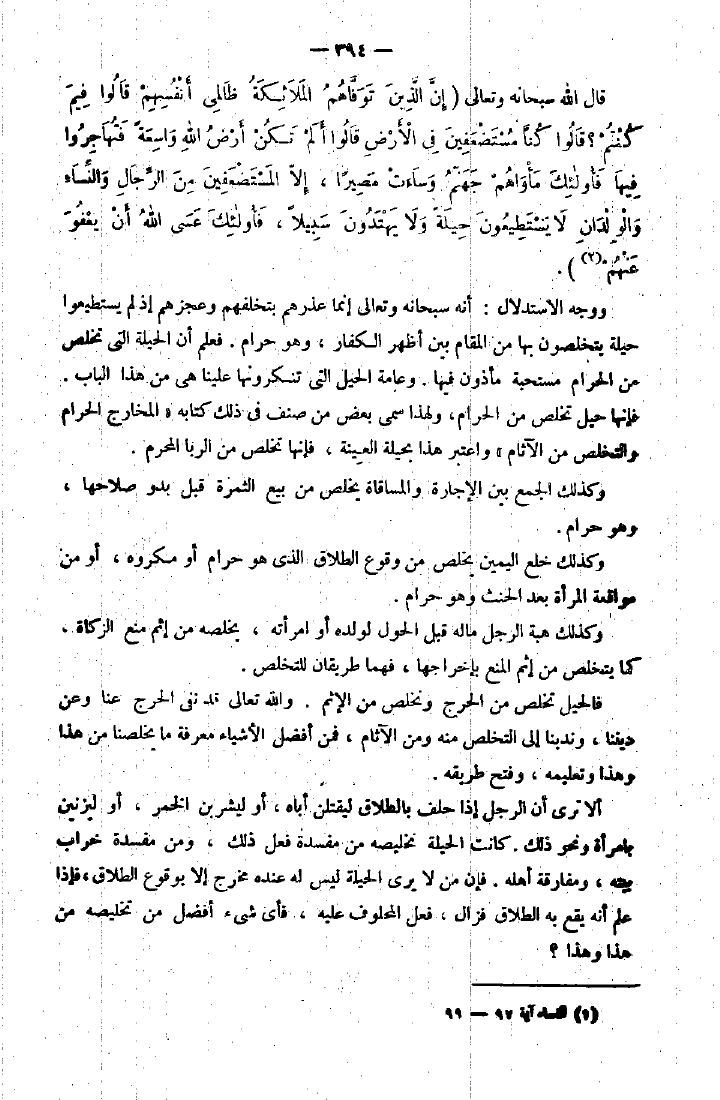 — ٣٩٤ —
قال الله سبحانه وتعالى ( إِنَّ الَّذِينَ تَوَفَّاهُمُ المَلَائِكَةُ ظَالِمِي أَنْفُسِهِمْ قَالُوا فِيمَ
كُنْتُمْ ؟ قَالُوا كُنَّا مُسْتَضْعَفِينَ فِى الْأَرْضِ قَالُوا أَلَمْ تَكُنْ أَرْضُ اللهِ وَاسِعَةً فَتُهَاجِرُوا
فِيهَا فَأُولٰئِكَ مَأْوَاهُمْ جَهَنَّمُ وَسَاءَتْ مَصِيرًا ، إِلاَّ المُسْتَضْعَفِينَ مِنَ الرِّجَالِ وَالنِّسَاءِ
وَالْوِلْدَانِ لَا يَسْتَطِيعُونَ حِيلَةً وَلَا يَهْتَدُونَ سَبِيلاً ، فَأُولٰئِكَ عَسَى اللهُ أَنْ يَعْفُوَ
عَنْهُمْ (٢) ) .
ووجه الاستدلال : أنه سبحانه وتعالى إنما عذرهم بتخلفهم وعجزهم إذ لم يستطيعوا
حيلة يتخلصون بها من المقام بين أظهر الكفار ، وهو حرام . فعلم أن الحيلة التى تخلص
من الحرام مستحبة مأذون فيها . وعامة الحيل التى تنكرونها علينا هى من هذا الباب .
فإنها حيل تخلص من الحرام ، ولهذا سمى بعض من صنف فى ذلك كتابه « المخارج الحرام
والتخلص من الآثام » واعتبر هذا بحيلة العينة ، فإنها تخلص من الربا المحرم .
وكذلك الجمع بين الإجارة والمساقاة يخلص من بيع الثمرة قبل بدو صلاحها ،
وهو حرام .
وكذلك خلع اليمين يخلص من وقوع الطلاق الذى هو حرام أو مكروه ، أو من
مواقعة المرأة بعد الحنث وهو حرام .
وكذلك هبة الرجل ماله قبل الحول لولده أو امرأته ، يخلصه من إثم منع الزكاة ،
كما يتخلص من إثم المنع بإخراجها ، فهما طريقان للتخلص .
فالحيل تخلص من الحرج وتخلص من الإثم . والله تعالى قد نفى الحرج عنا وعن
ديننا ، وندبنا إلى التخلص منه ومن الآثام ، فمن أفضل الأشياء معرفة ما يخلصنا من هذا
وهذا وتعليمه ، وفتح طريقه .
ألا ترى أن الرجل إذا حلف بالطلاق ليقتلن أباه ، أو ليشربن الخمر ، أو ليزنين
بامرأة ونحو ذلك . كانت الحيلة تخليصه من مفسدة فعل ذلك ، ومن مفسدة خراب
بيته ، ومفارقة أهله . فإن من لا يرى الحيلة ليس له عنده مخرج إلا بوقوع الطلاق ، فإذا
علم أنه يقع به الطلاق فزال ، فعل المحلوف عليه ، فأى شىء أفضل من تخليصه من
هذا وهذا ؟
(١) النساء آية ٩٧ — ٩٩